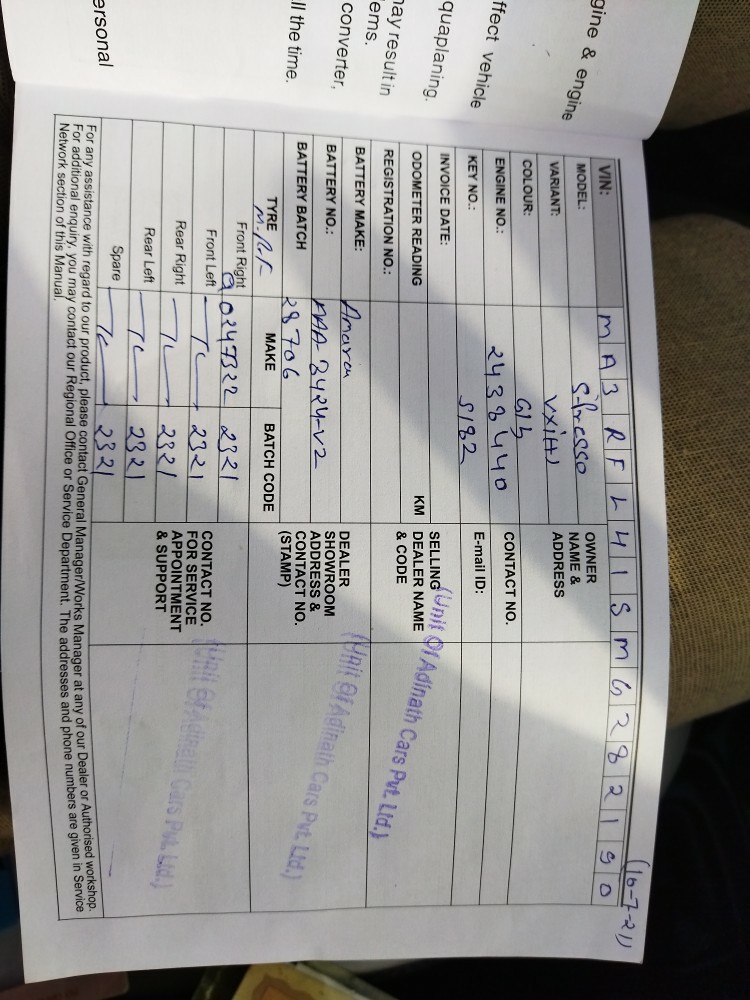 gine & engine
ffect vehicle
quaplaning.
nay result in
ems.
converter,
ll the time.
ersonal
(16-7-21)
VIN: M A 3 R F L 4 1 S M G 2 8 2 1 9 0
MODEL: S-Presso
VARIANT: VXi(H)
COLOUR:
ENGINE NO.: 2438440
KEY NO.: 5182
INVOICE DATE:
ODOMETER READING KM
REGISTRATION NO.:
BATTERY MAKE: Amaron
BATTERY NO.: AAA-2424-V2
BATTERY BATCH 28706
TYRE MAKE BATCH CODE
M.R.F
Front Right 90247322 2321
Front Left 2321
Rear Right 2321
Rear Left 2321
Spare 2321
OWNER
NAME &
ADDRESS
CONTACT NO.
E-mail ID:
SELLING
DEALER NAME
& CODE
(Unit Of Adinath Cars Pvt. Ltd.)
DEALER
SHOWROOM
ADDRESS &
CONTACT NO.
(STAMP)
(Unit Of Adinath Cars Pvt. Ltd.)
CONTACT NO.
FOR SERVICE
APPOINTMENT
& SUPPORT
(Unit Of Adinath Cars Pvt. Ltd.)
For any assistance with regard to our product, please contact General Manager/Works Manager at any of our Dealer or Authorised workshop.
For additional enquiry, you may contact our Regional Office or Service Department. The addresses and phone numbers are given in Service
Network section of this Manual.